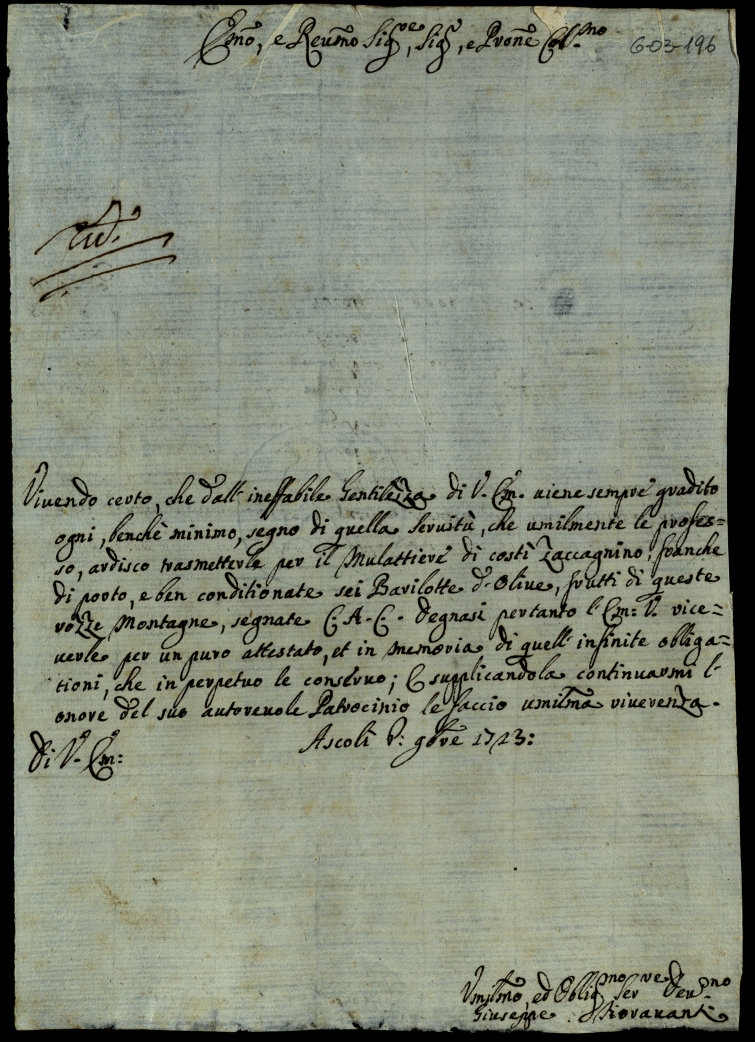 Emõ, e Reuṁo Sig.re, Sig.r, e Prone Col.mo
6-03-196
Vivendo certo, che dall' ineffabile Gentilezza di V. Em. uiene sempre gradito
ogni, benchè minimo, segno di quella seruitù, che umilmente le profes=
so, ardisco trasmetterle per il Mulattiere di costì Zaccagnino, franche
di porto, e ben conditionate sei Barilotte d'Oliue, frutti di queste
rozze Montagne, segnate C. A. C. Degnasi pertanto l'Em: V. rice=
uerle per un puro attestato, et in memoria di quell' infinite obliga=
tioni, che in perpetuo le conseruo; E supplicandola continuarmi l'
onore del suo autoreuole Patrocinio le faccio umilma riuerenza.
Ascoli 9bre 1723:
Di V. Em:
Vmilmo, ed Oblig.mo Ser.re Deu.mo
Giuseppe